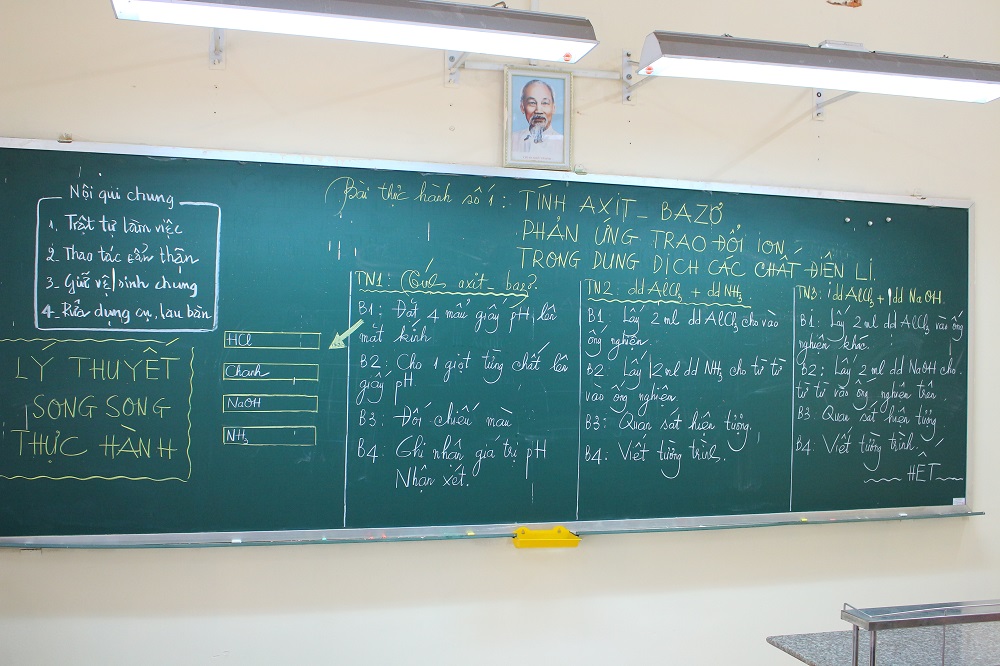 Nội qui chung
1. Trật tự làm việc
2. Thao tác cẩn thận
3. Giữ vệ sinh chung
4. Rửa dụng cụ, lau bàn
LÝ THUYẾT
SONG SONG
THỰC HÀNH
HCl
Chanh
NaOH
NH3
Bài thực hành số 1: TÍNH AXIT_BAZƠ
PHẢN ỨNG TRAO ĐỔI ION
TRONG DUNG DỊCH CÁC CHẤT ĐIỆN LI.
TN1: axit_bazơ
B1: Đặt 4 mẩu giấy pH lên
mặt kính
B2: Cho 1 giọt từng chất lên
giấy pH
B3: Đối chiếu màu
B4: Ghi nhận giá trị pH
Nhận xét.
TN2: dd AlCl3 + dd NH3
B1: Lấy 2 ml dd AlCl3 cho vào
ống nghiệm.
B2: Lấy 2 ml dd NH3 cho từ từ
vào ống nghiệm
B3: Quan sát hiện tượng.
B4: Viết tường trình.
TN3: dd AlCl3 + dd NaOH.
B1: Lấy 2 ml dd AlCl3 vào ống
nghiệm khác.
B2: Lấy 2 ml dd NaOH cho
từ từ vào ống nghiệm trên
B3: Quan sát hiện tượng.
B4: Viết tường trình.
HẾT